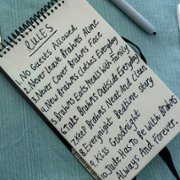 RULES
1. No Guests Allowed
2. Never Leave Brahms Alone
3. Never Cover Brahms Face
4. New Brahms Clothes Everyday
5. Brahms Eats Meals With Family
6. Take Brahms Outside Everyday
7. Keep Brahms Neat And Clean
8. Everynight Bedtime Story
9. Kiss Goodnight
10. Promise To Be With Brahms
Always And Forever.